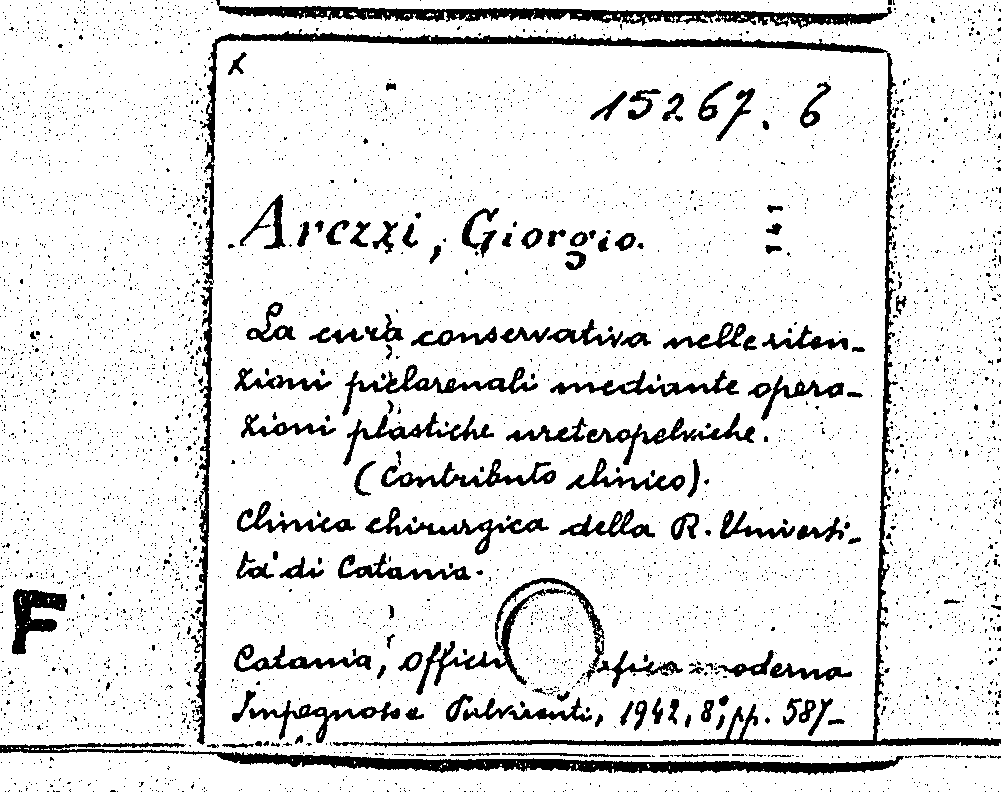 x
15267. 6
Arezzi, Giorgio.
141
La cura conservativa nelle riten-
zioni pielorenali mediante opera-
zioni plastiche ureteropelviche.
(Contributo clinico).
Clinica chirurgica della R. Universi-
tà di Catania.
F
Catania, moderna
Pulvirenti, 1942, 8°, pp. 587-